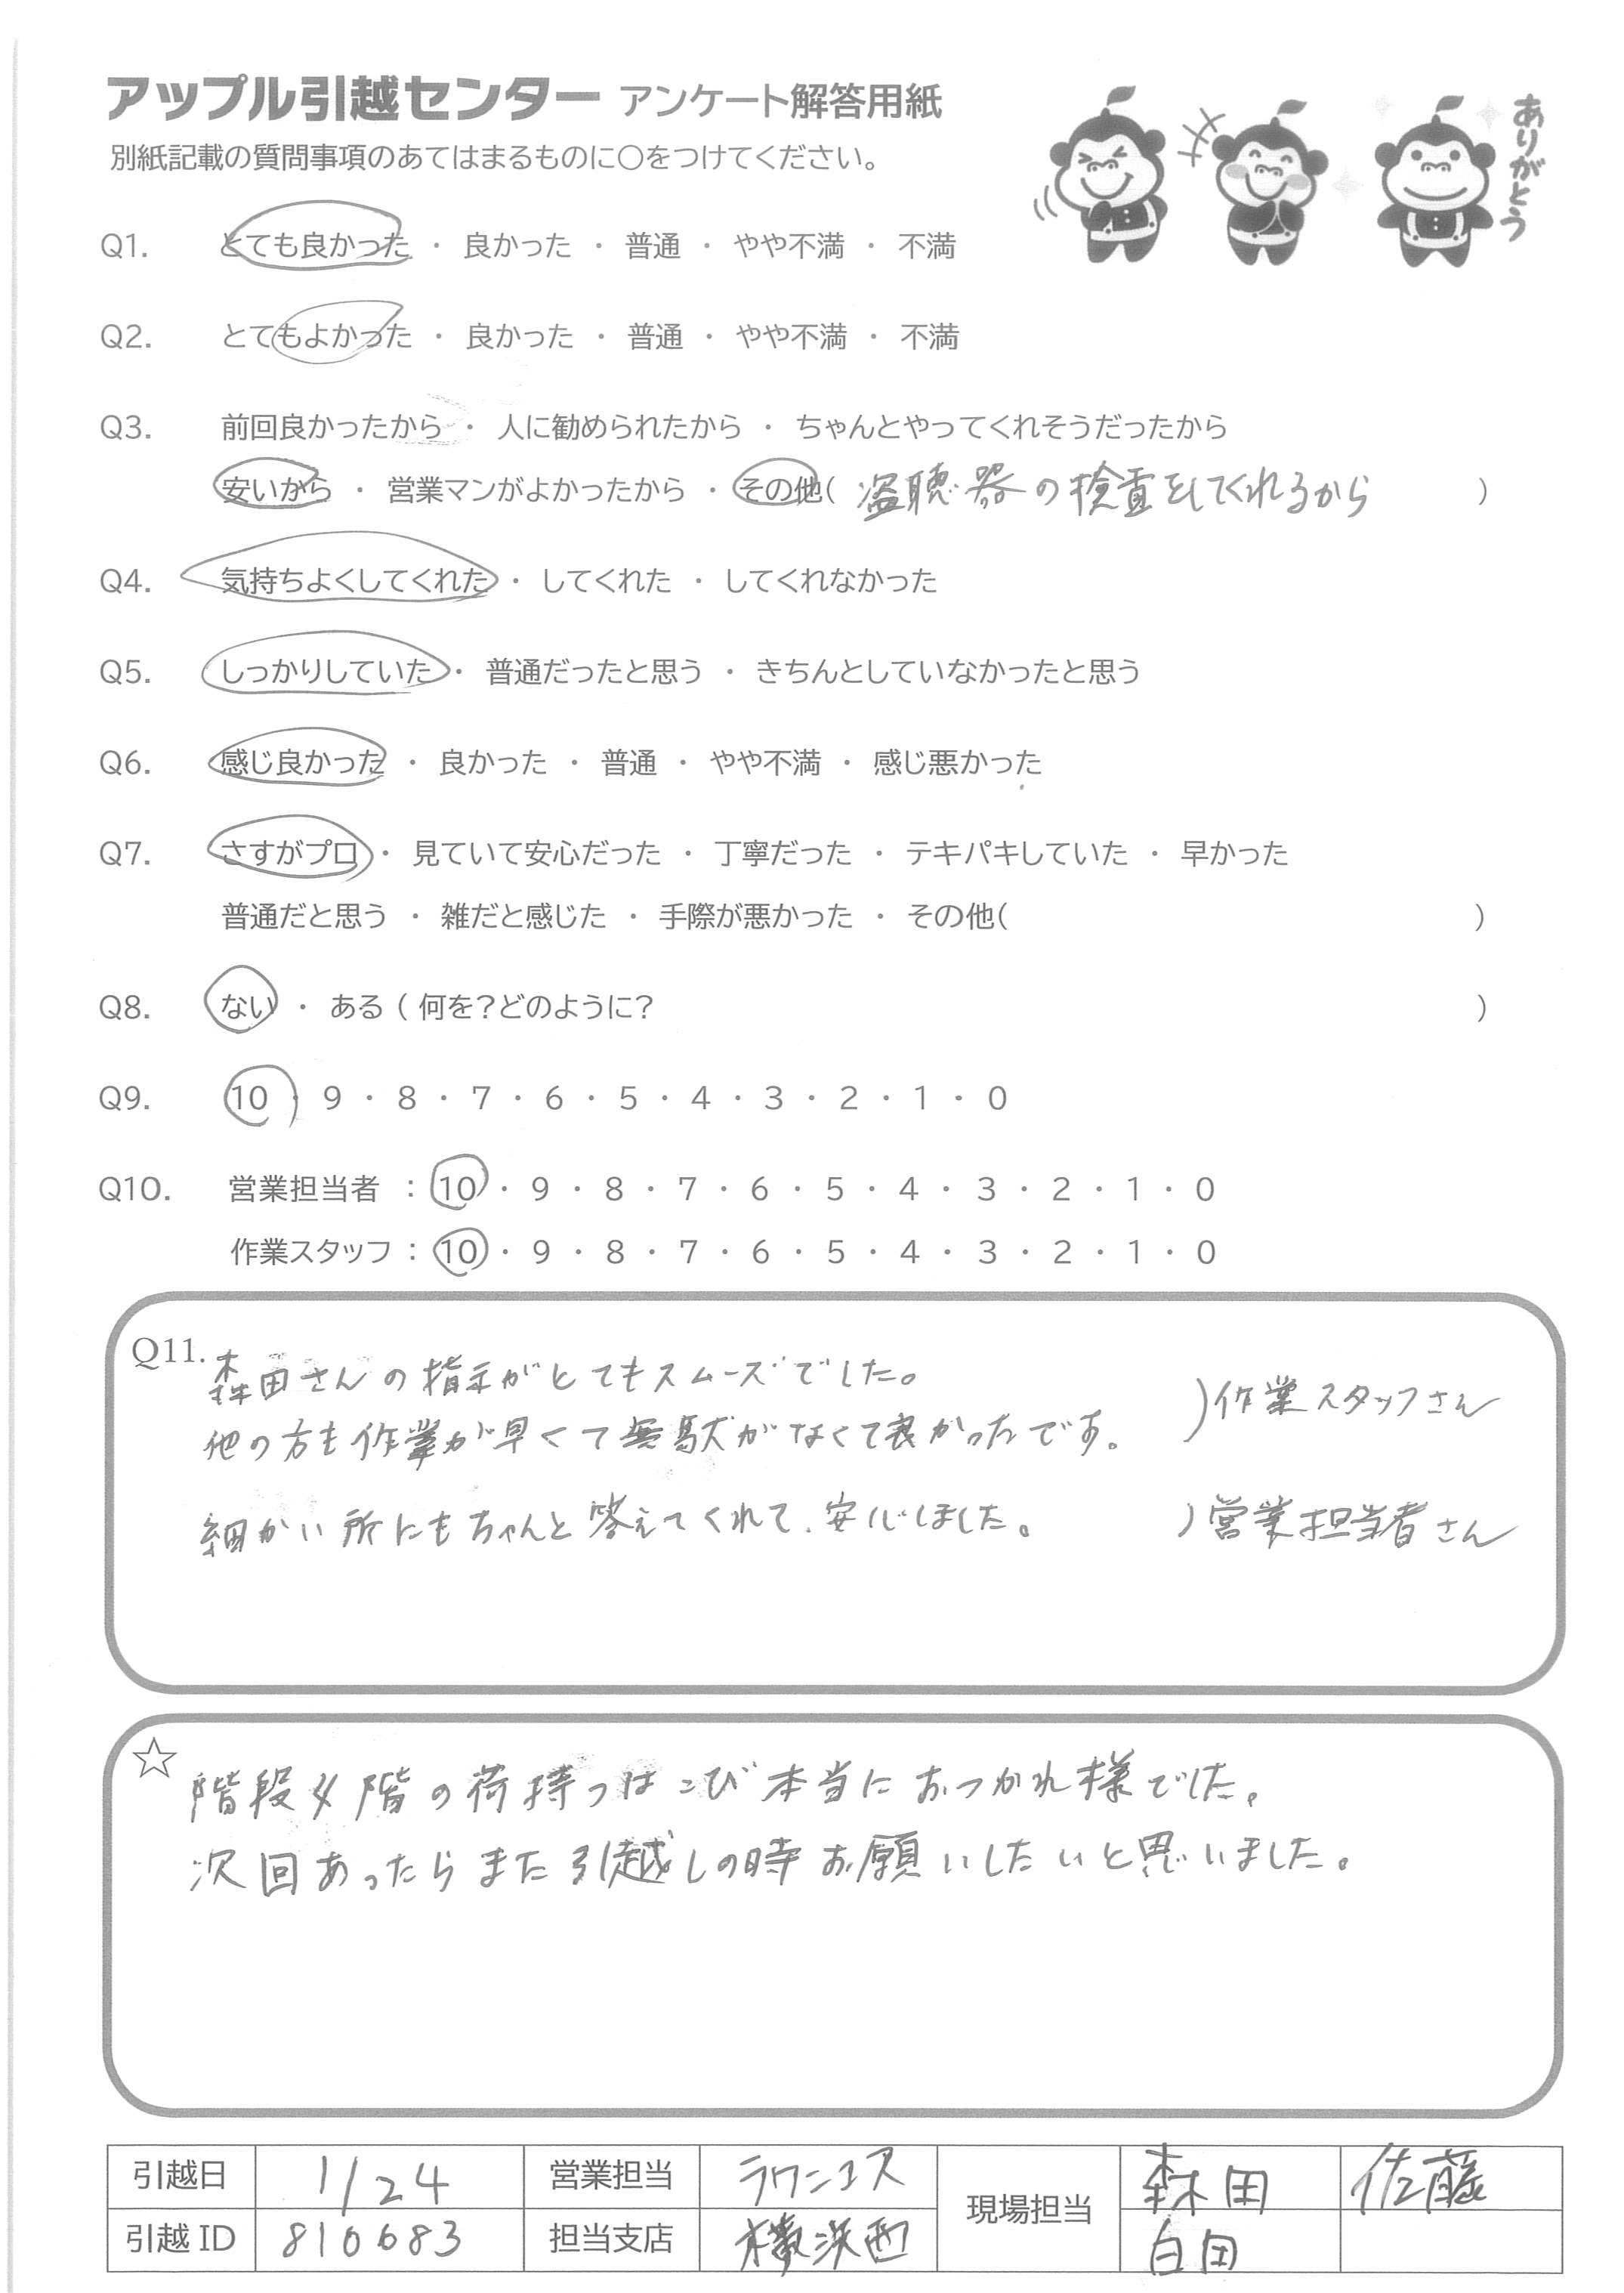 アップル引越センター アンケート解答用紙
別紙記載の質問事項のあてはまるものに○をつけてください。
ありがとう
Q1. とても良かった ・ 良かった ・ 普通 ・ やや不満 ・ 不満
Q2. とてもよかった ・ 良かった ・ 普通 ・ やや不満 ・ 不満
Q3. 前回良かったから ・ 人に勧められたから ・ ちゃんとやってくれそうだったから
安いから ・ 営業マンがよかったから ・ その他( 盗聴器の検査をしてくれるから )
Q4. 気持ちよくしてくれた ・ してくれた ・ してくれなかった
Q5. しっかりしていた ・ 普通だったと思う ・ きちんとしていなかったと思う
Q6. 感じ良かった ・ 良かった ・ 普通 ・ やや不満 ・ 感じ悪かった
Q7. さすがプロ ・ 見ていて安心だった ・ 丁寧だった ・ テキパキしていた ・ 早かった
普通だと思う ・ 雑だと感じた ・ 手際が悪かった ・ その他( )
Q8. ない ・ ある ( 何を?どのように? )
Q9. 10 ・ 9 ・ 8 ・ 7 ・ 6 ・ 5 ・ 4 ・ 3 ・ 2 ・ 1 ・ 0
Q10. 営業担当者 : 10 ・ 9 ・ 8 ・ 7 ・ 6 ・ 5 ・ 4 ・ 3 ・ 2 ・ 1 ・ 0
作業スタッフ : 10 ・ 9 ・ 8 ・ 7 ・ 6 ・ 5 ・ 4 ・ 3 ・ 2 ・ 1 ・ 0
Q11. 森田さんの指示がとてもスムーズでした。
他の方も作業が早くて無駄がなくて良かったです。 )作業スタッフさん
細かい所にもちゃんと答えてくれて、安心しました。 )営業担当者さん
☆ 階段4階の荷持つはこび本当におつかれ様でした。
次回あったらまた引越しの時お願いしたいと思いました。
引越日 1/24 営業担当 現場担当 森田 佐藤
引越ID 810683 担当支店 横浜西 白田